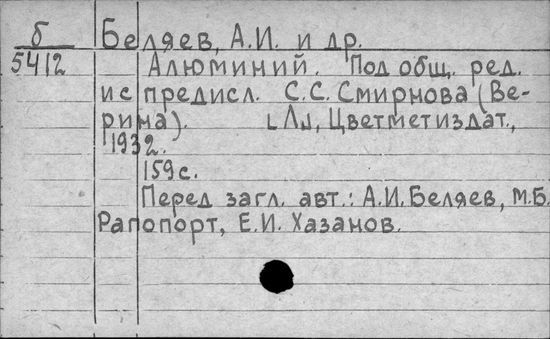 б Беляев, А.И. и др.
5412 Алюминий. Под общ. ред.
и с предисл. С.С. Смирнова (Ве-
рина). [Л], Цветметиздат.,
1932.
159с.
Перед загл. авт.: А.И. Беляев, М.Б.
Рапопорт, Е.И. Хазанов.